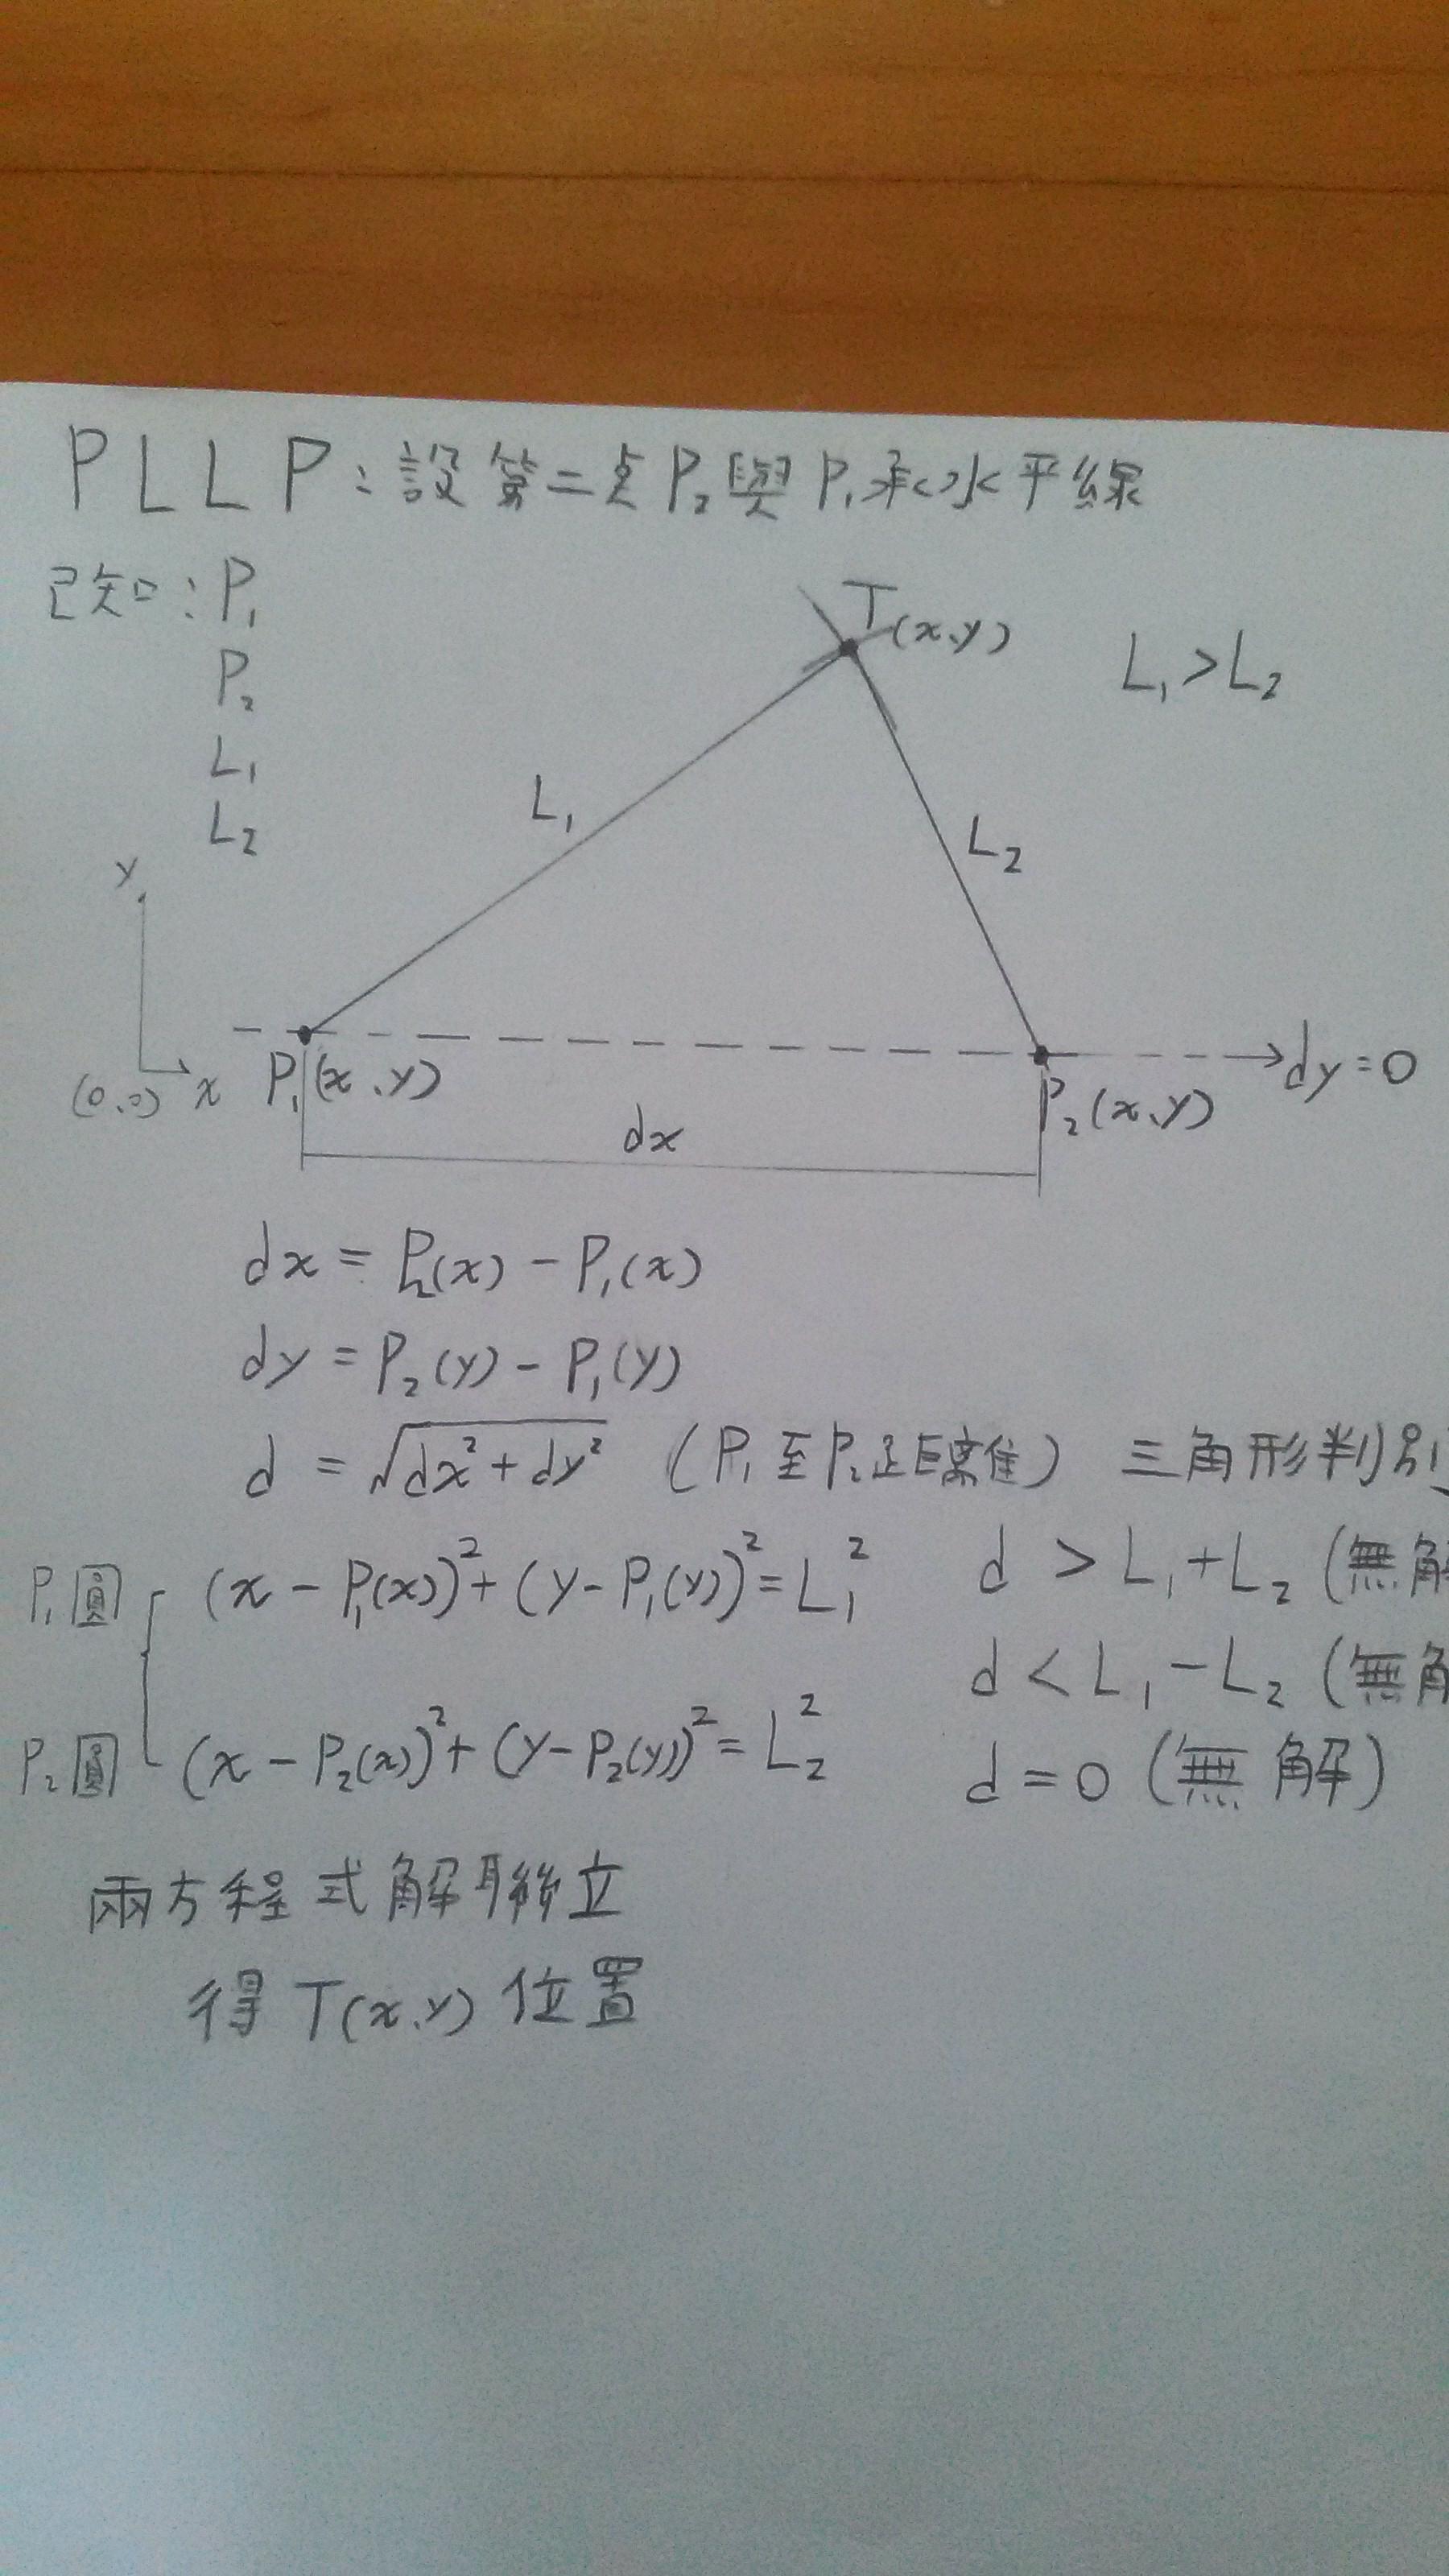 PLLP:設第二点P₂與P₁承水平線
已知:P₁
P₂
L₁
L₂
T(x、y)
L₁>L₂
L₁
L₂
y
(0、0) x
P₁(x、y)
P₂(x、y)
→dy=0
dx
dx = P₂(x) - P₁(x)
dy = P₂(y) - P₁(y)
d = √dx²+dy² (P₁至P₂距離) 三角形判別
P₁圓 (x - P₁(x))²+(y-P₁(y))²=L₁² d > L₁+L₂ (無解
P₂圓 (x-P₂(x))²+(y-P₂(y))²=L₂² d < L₁-L₂ (無
d=0 (無解)
兩方程式解聯立
得T(x、y)位置